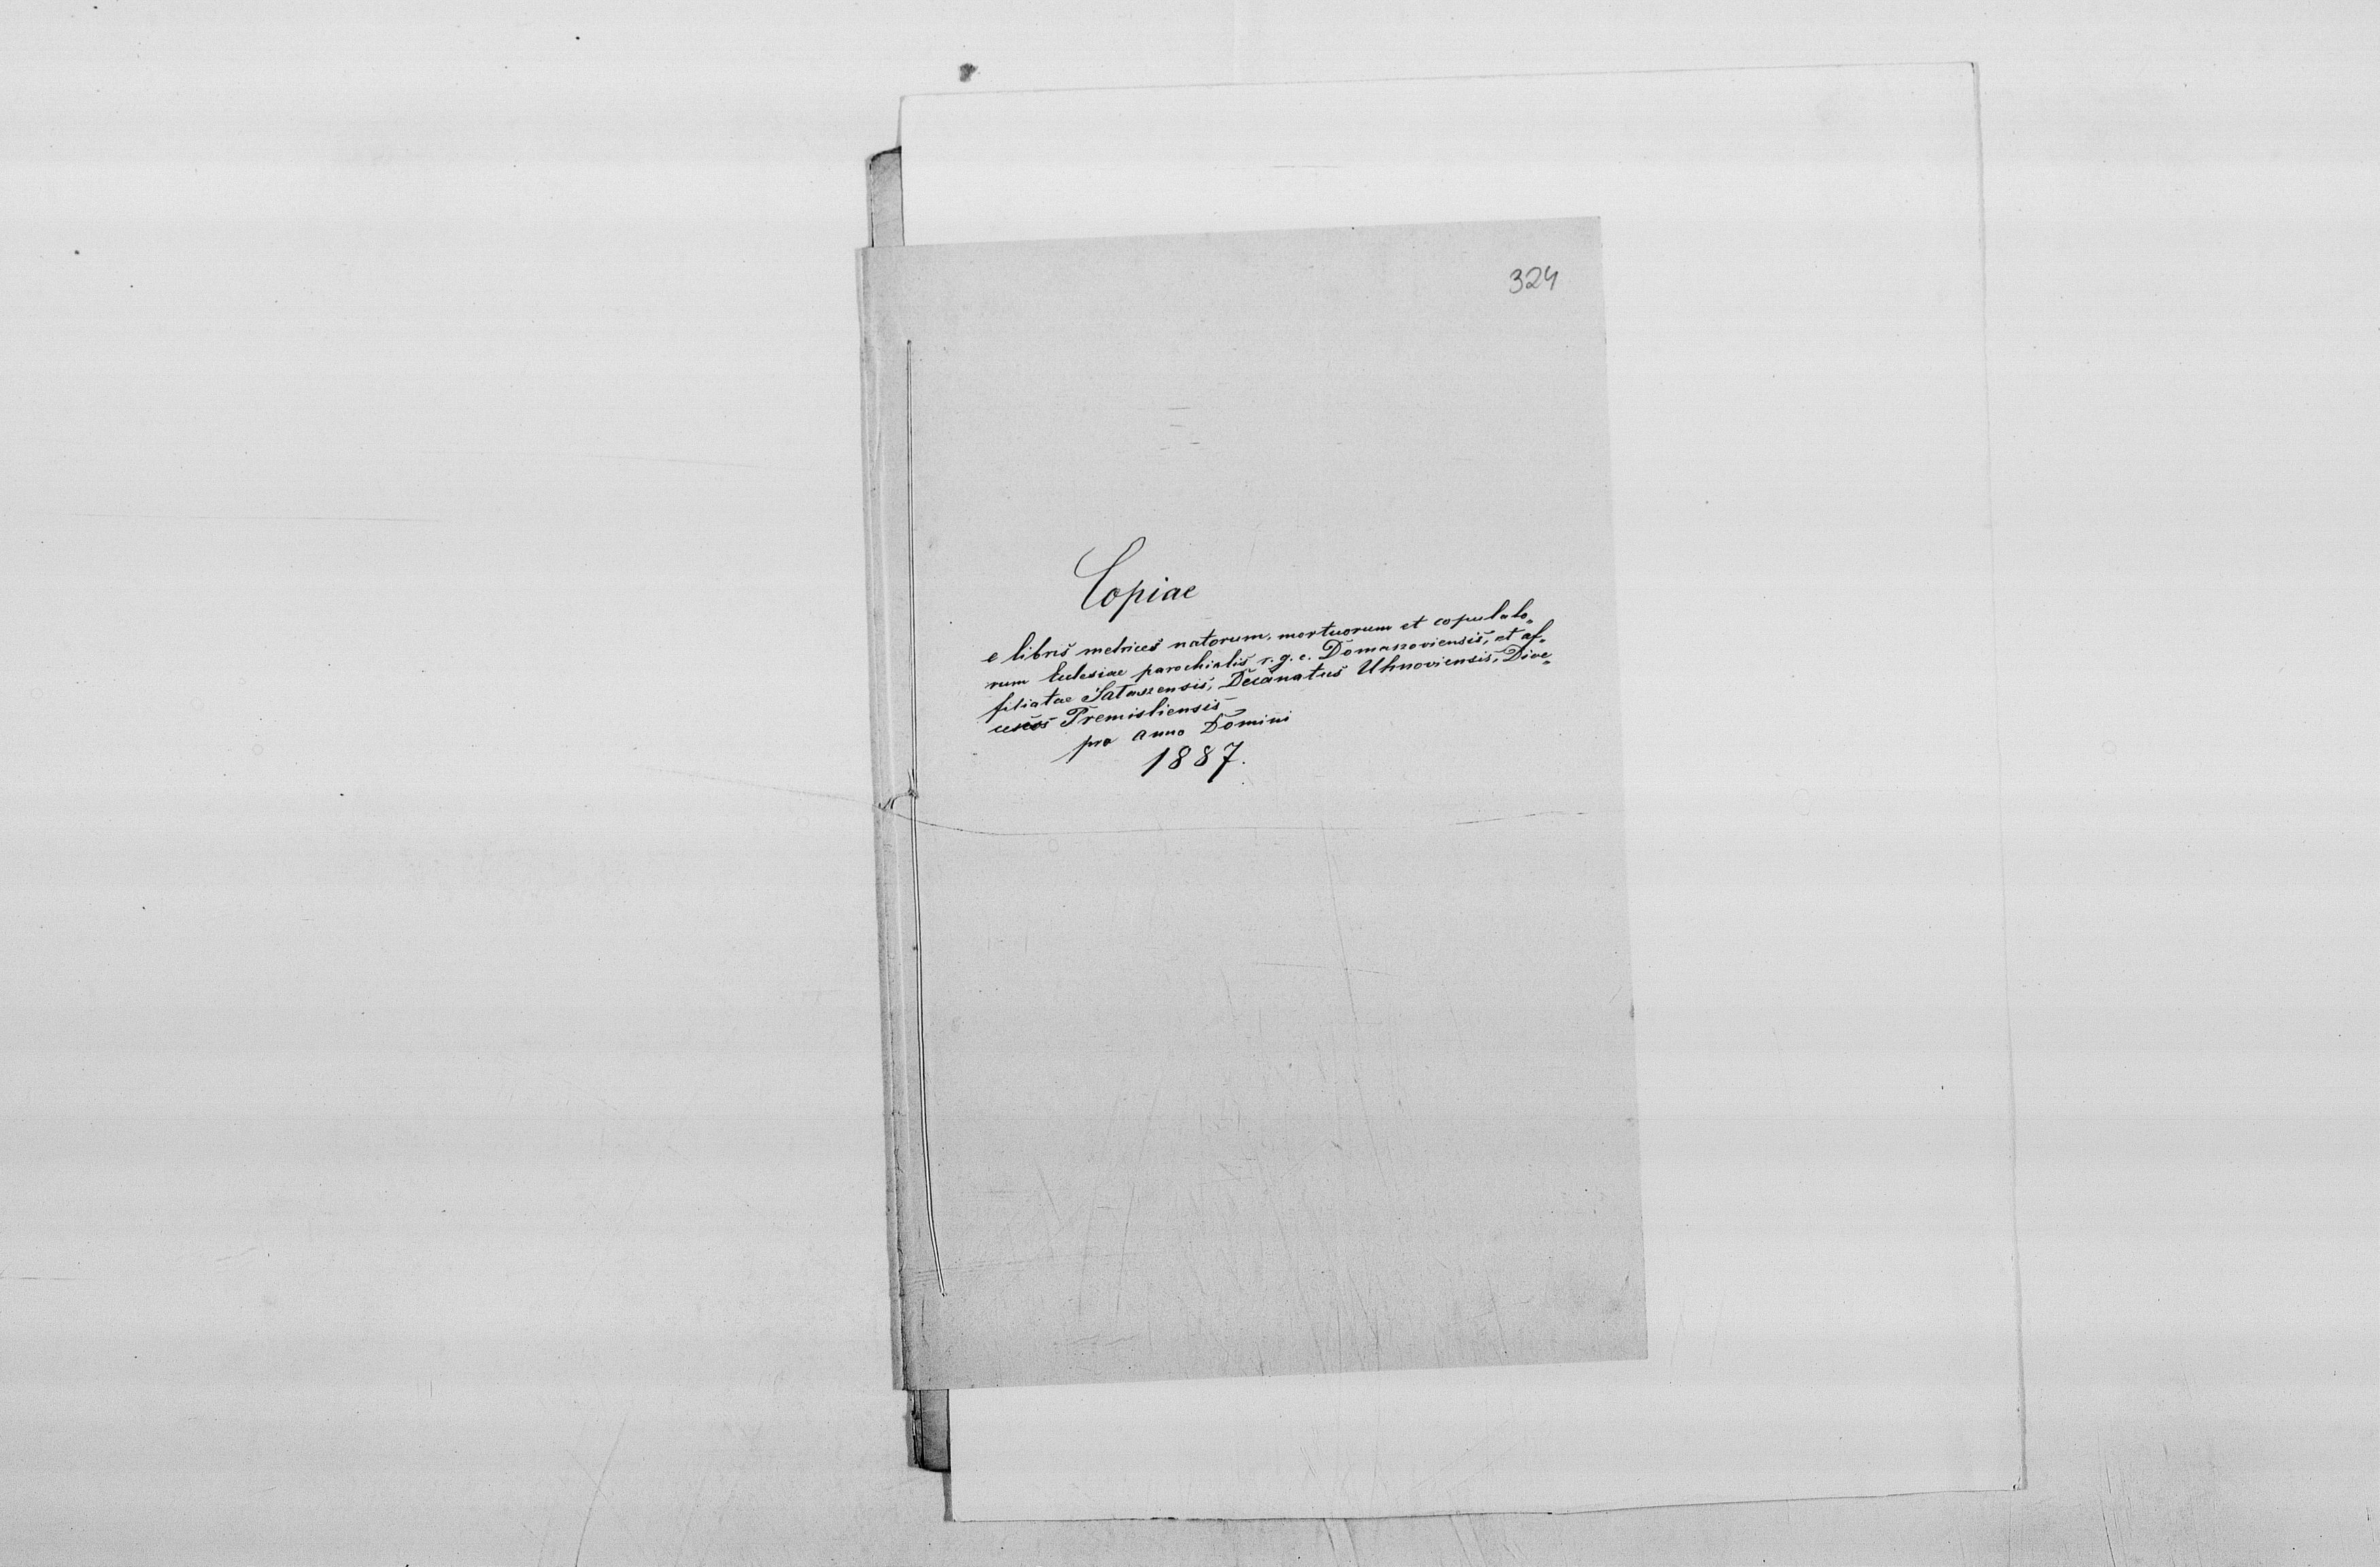 324
Copiae
e libris metrices natorum, mortuorum et copulato„
rum Eclesiae parochialis r. g. c. Domaszoviensis, et af„
filiatae Sataszensis, Decanatus Uhnoviensis, Dioe„
ceseos Premisliensis
pro anno Domini
1887.